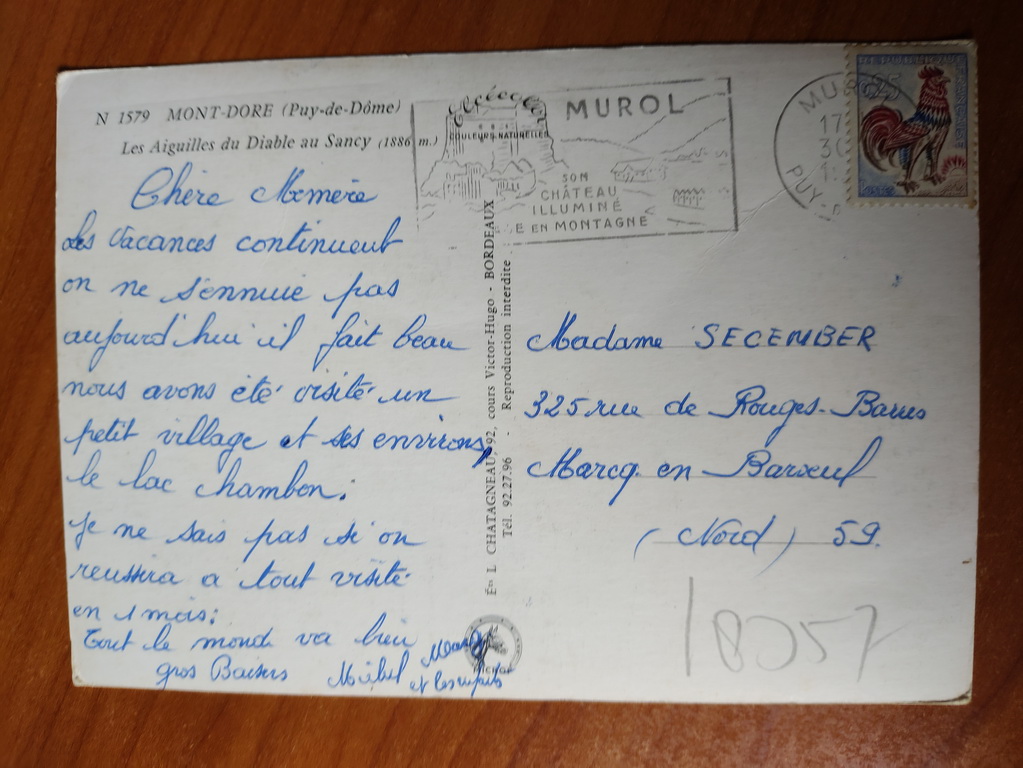 N 1579 MONT-DORE (Puy-de-Dôme)
Les Aiguilles du Diable au Sancy (1886 m.)
COULEURS NATURELLES
MUROL
SON
CHÂTEAU
ILLUMINÉ
EN MONTAGNE
MUROL
17
PUY-D
Chère Mémère
Les Vacances continuent
on ne s'ennuie pas
aujourd'hui il fait beau
nous avons été visité un
petit village et ses environs,
le lac chambon.
Je ne sais pas si on
reussira a tout visité
en 1 mois.
Tout le monde va bien
gros Baisers
et les enfants
Ets L. CHATAGNEAU, 92, cours Victor-Hugo - BORDEAUX
Tél. 92.27.96 - Reproduction interdite
Madame SECEMBER
325 rue de Rouges-Barres
Marcq en Baroeul
(Nord) 59.
18057